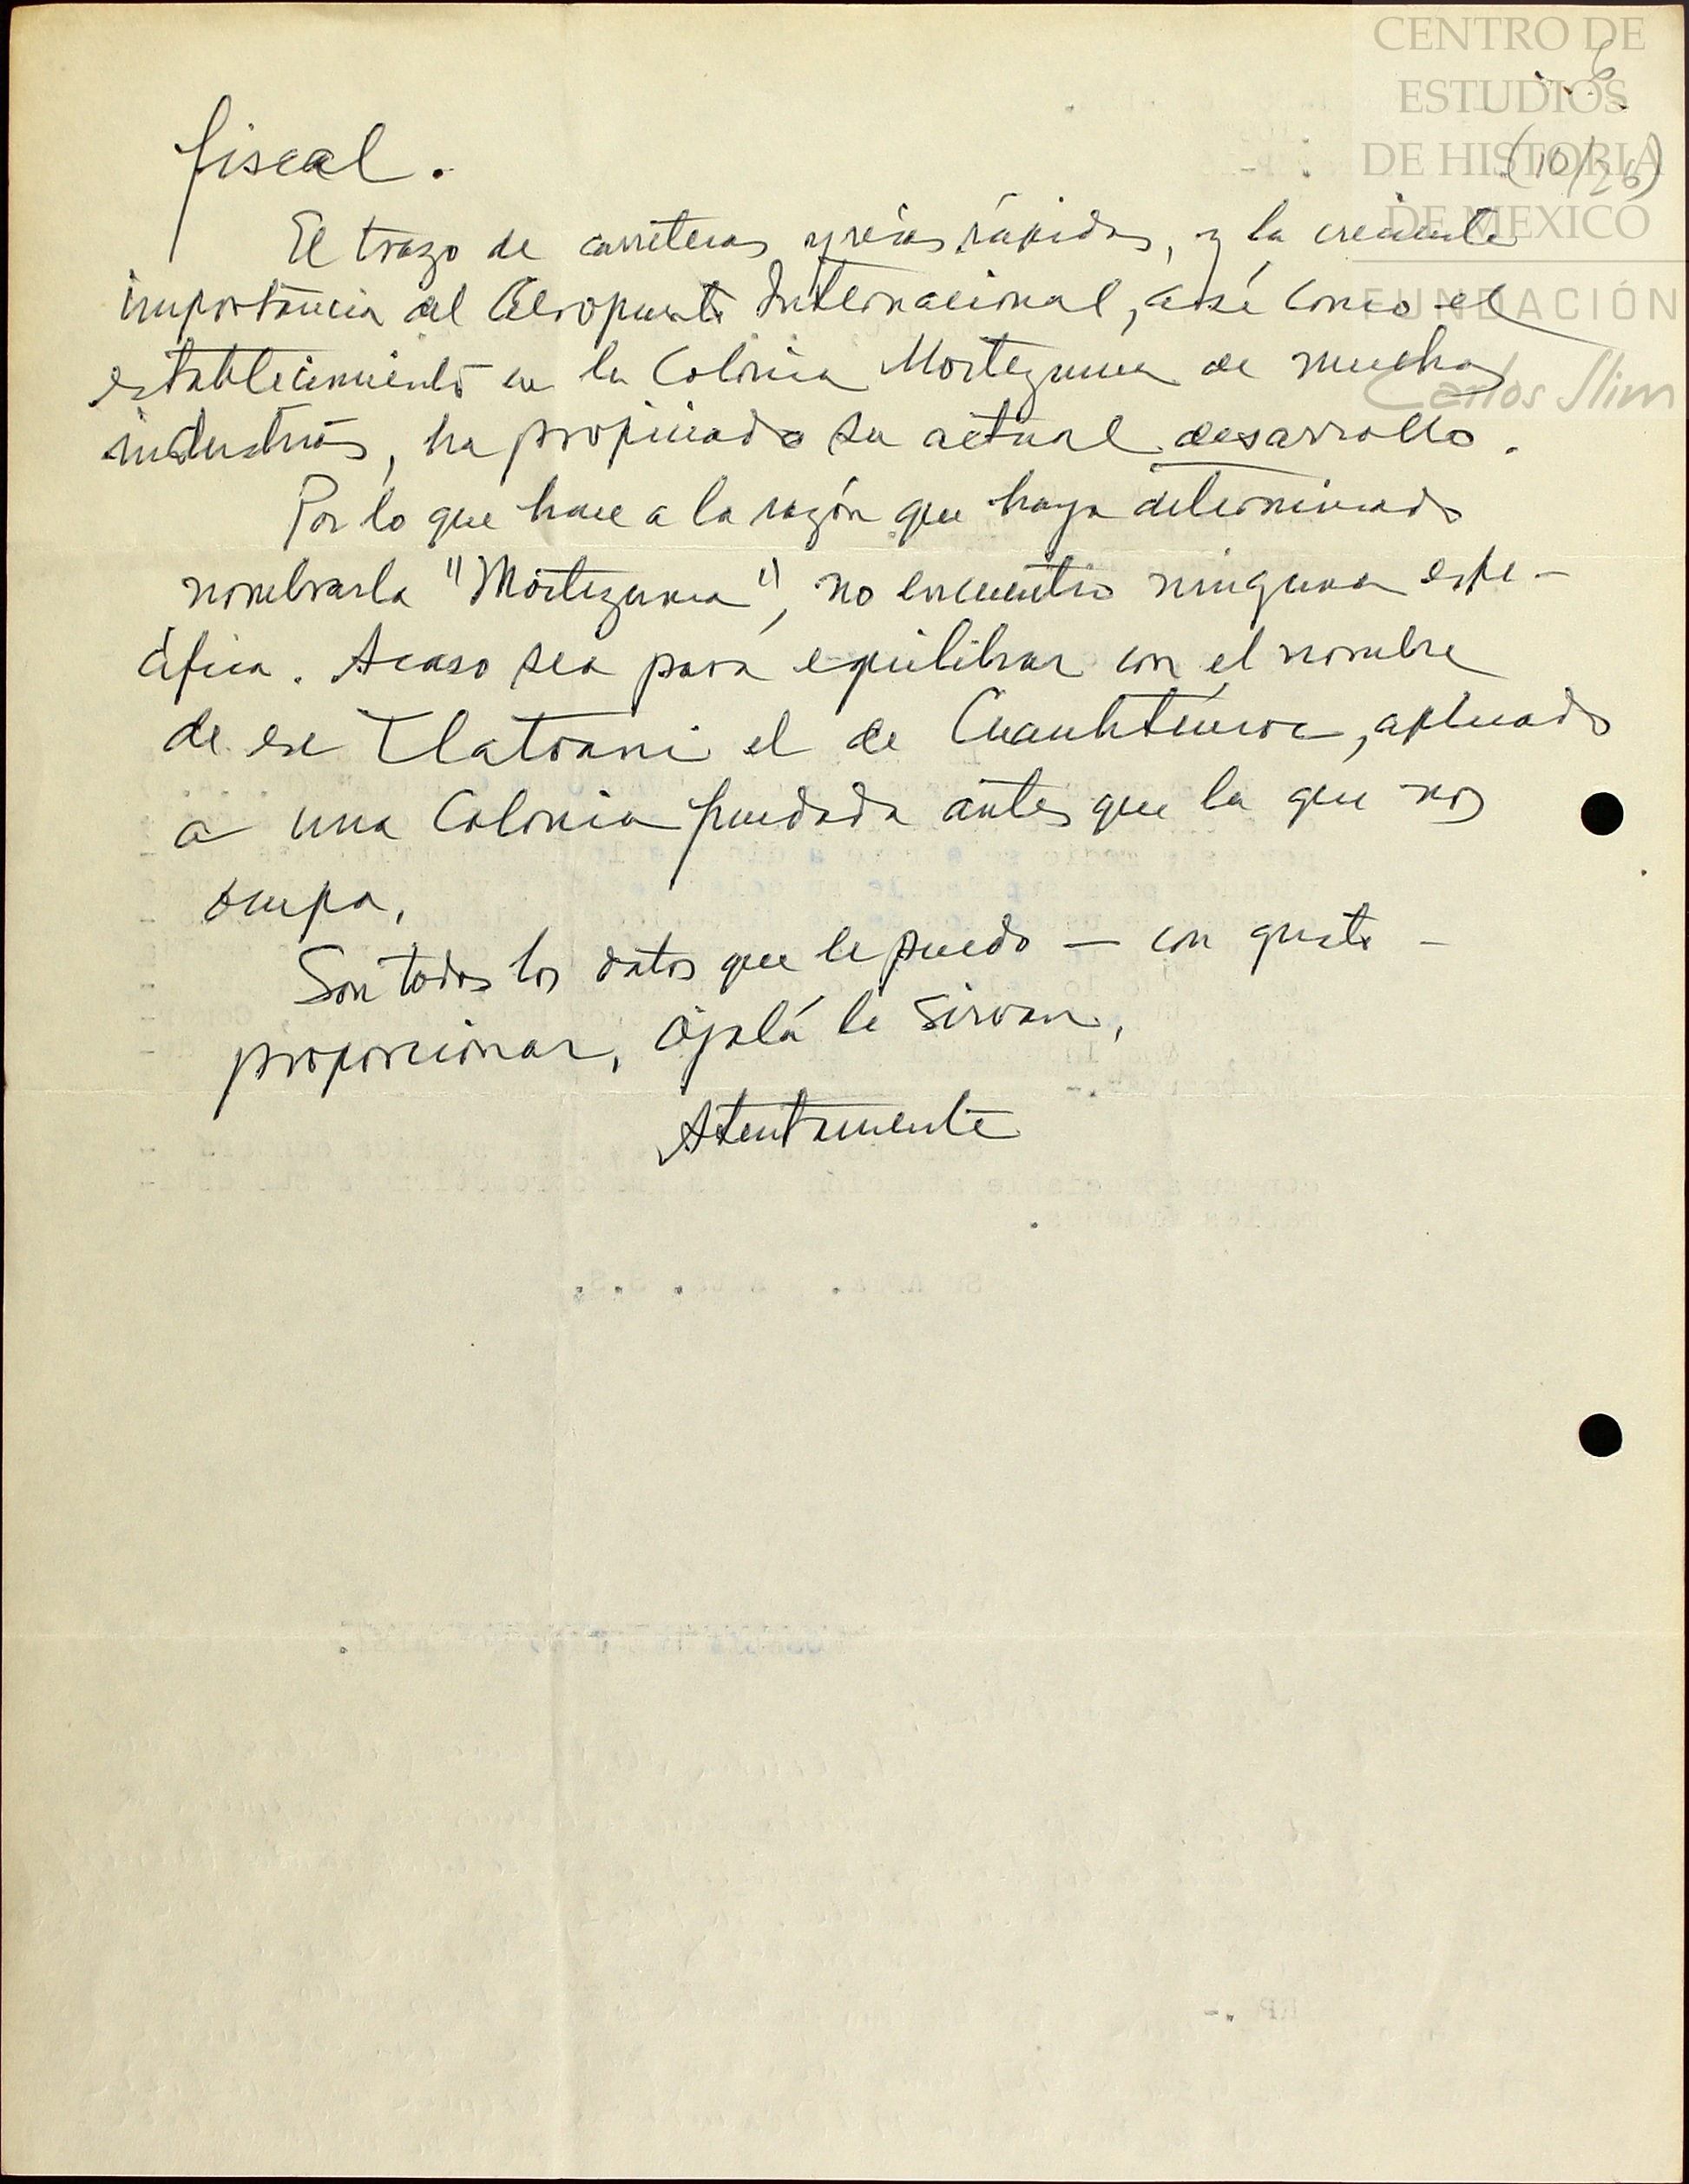 CENTRO DE
ESTUDIOS
DE HISTORIA
DE MEXICO
FUNDACIÓN
Carlos Slim
6
(10/26)
fiscal.
El trazo de carreteras y vías rápidas, y la creciente
importancia del Aeropuerto Internacional, así como el
establecimiento en la Colonia Moctezuma de muchas
industrias, ha propiciado su actual desarrollo.
Por lo que hace a la razón que haya determinado
nombrarla "Moctezuma", no encuentro ninguna espe-
cífica. Acaso sea para equilibrar con el nombre
de ese Tlatoani el de Cuauhtémoc, aplicado
a una Colonia fundada antes que la que nos
ocupa.
Son todos los datos que le puedo — con gusto —
proporcionar, ojalá le sirvan,
Atentamente